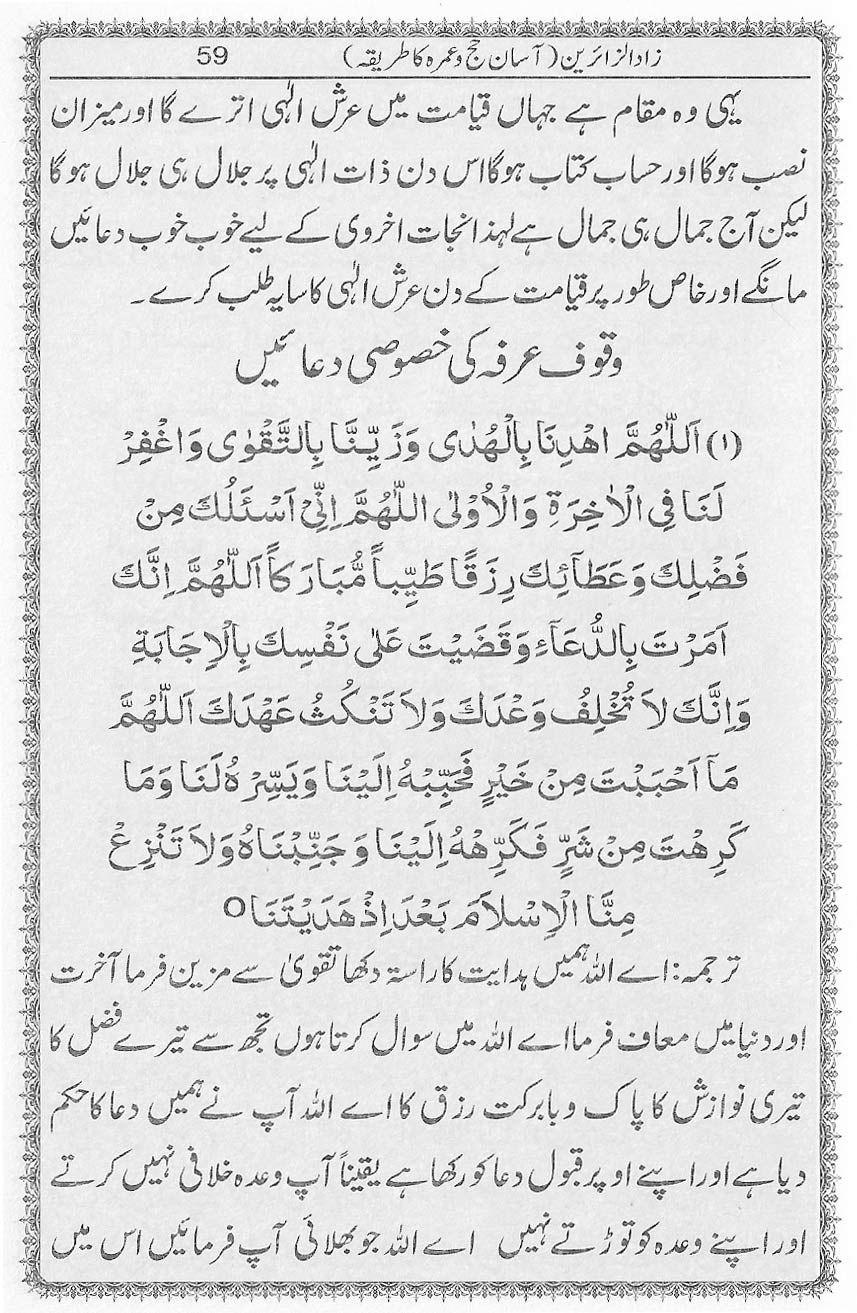 زاد الزائرین (آسان حج و عمرہ کا طریقہ) 59
یہی وہ مقام ہے جہاں قیامت میں عرش الٰہی اترے گا اور میزان
نصب ہوگا اور حساب کتاب ہوگا اس دن ذات الٰہی پر جلال ہی جلال ہوگا
لیکن آج جمال ہی جمال ہے لہذا نجات اخروی کے لیے خوب خوب دعائیں
مانگے اور خاص طور پر قیامت کے دن عرش الٰہی کا سایہ طلب کرے۔
وقوف عرفہ کی خصوصی دعائیں
(۱) اَللّٰهُمَّ اهْدِنَا بِالْهُدٰی وَزَيِّنَّا بِالتَّقْوٰی وَاغْفِرْ
لَنَا فِی الْاٰخِرَةِ وَالْاُوْلٰی اللّٰهُمَّ اِنِّیْ اَسْئَلُكَ مِنْ
فَضْلِكَ وَعَطَآئِكَ رِزَقًا طَيِّباً مُّبَارَكاً اَللّٰهُمَّ اِنَّكَ
اَمَرْتَ بِالدُّعَآءِ وَقَضَيْتَ عَلٰی نَفْسِكَ بِالْاِجَابَةِ
وَاِنَّكَ لَا تُخْلِفُ وَعْدَكَ وَلَا تَنْكُثُ عَهْدَكَ اَللّٰهُمَّ
مَآ اَحْبَبْتَ مِنْ خَيْرٍ فَحَبِّبْهُ اِلَيْنَا وَيَسِّرْهُ لَنَا وَمَا
كَرِهْتَ مِنْ شَرٍّ فَكَرِّهْهُ اِلَيْنَا وَجَنِّبْنَاهُ وَلَا تَنْزِعْ
مِنَّا الْاِسْلَامَ بَعْدَ اِذْ هَدَيْتَنَا ○
ترجمہ: اے اللہ ہمیں ہدایت کا راستہ دکھا تقویٰ سے مزین فرما آخرت
اور دنیا میں معاف فرما اے اللہ میں سوال کرتا ہوں تجھ سے تیرے فضل کا
تیری نوازش کا پاک و بابرکت رزق کا اے اللہ آپ نے ہمیں دعا کا حکم
دیا ہے اور اپنے اوپر قبول دعا کو رکھا ہے یقیناً آپ وعدہ خلافی نہیں کرتے
اور اپنے وعدہ کو توڑتے نہیں اے اللہ جو بھلائی آپ فرمائیں اس میں